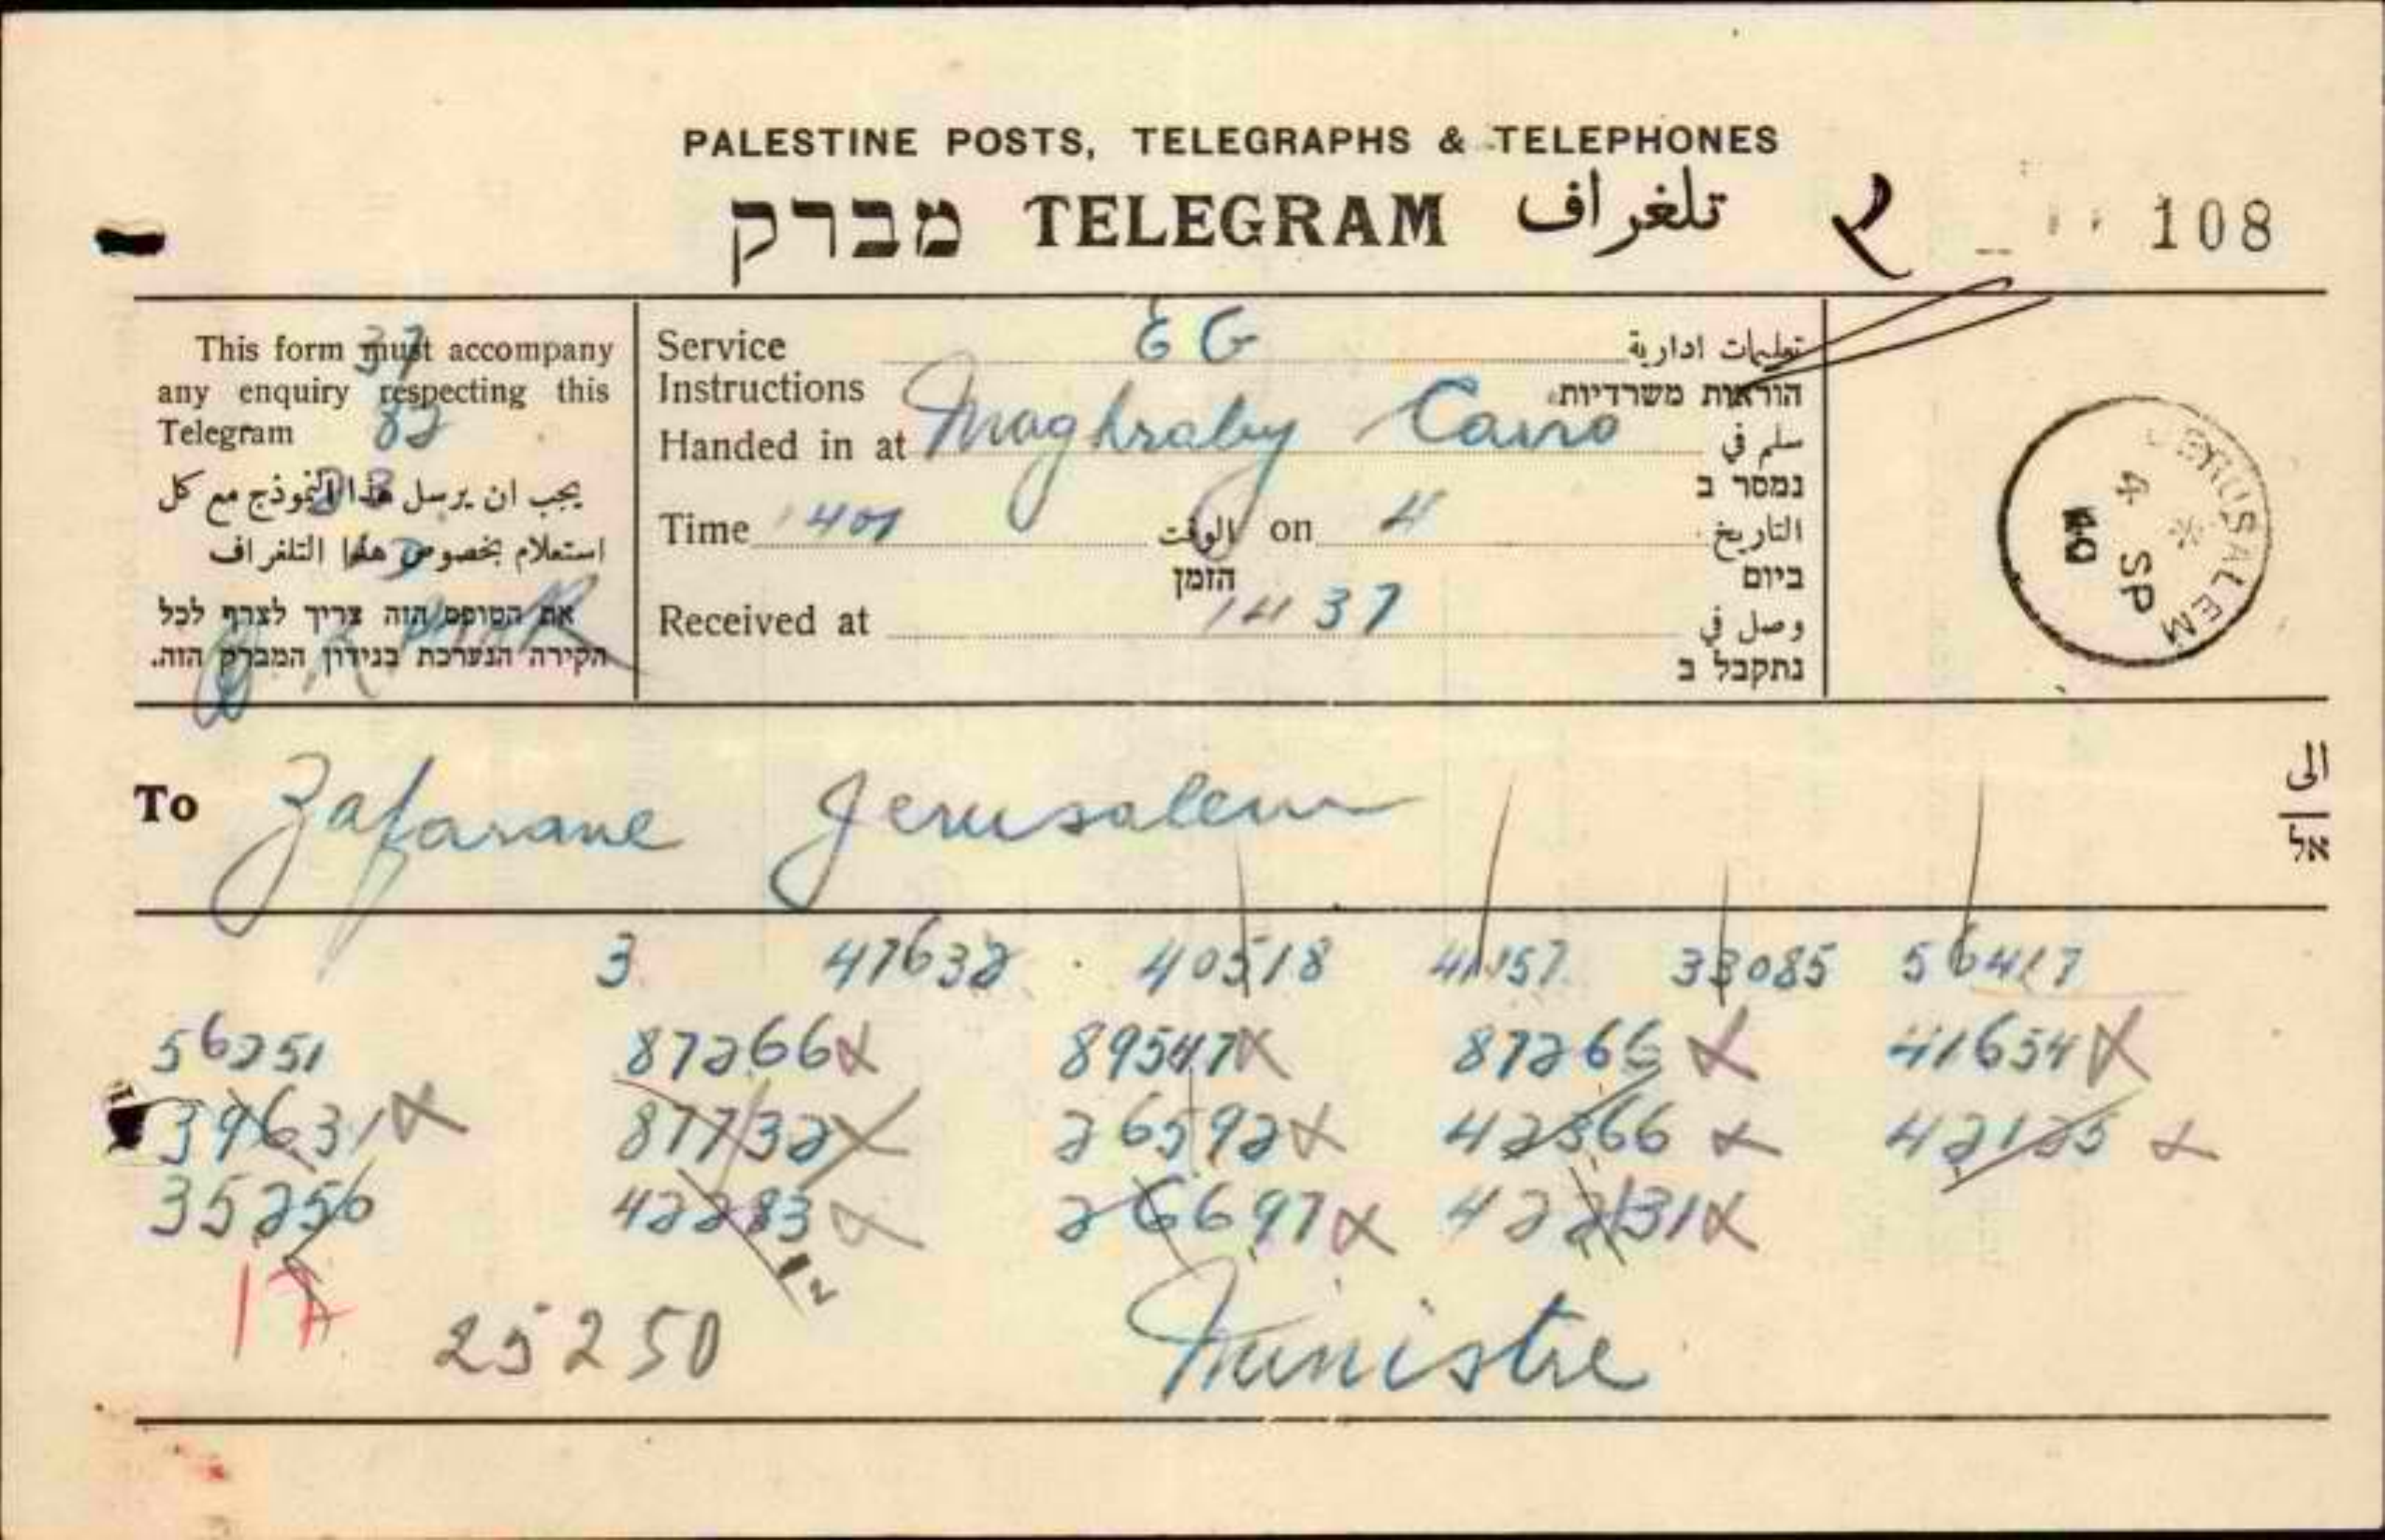 PALESTINE POSTS, TELEGRAPHS & TELEPHONES
מברק TELEGRAM تلغراف
108
This form must accompany
any enquiry respecting this
Telegram
37
82
يجب ان يرسل هذا النموذج مع كل
استعلام بخصوص هذا التلغراف
את הטופס הזה צריך לצרף לכל
חקירה הנערכת בנידון המברק הזה.
Service EG تعليمات ادارية
Instructions הוראות משרדיות
Handed in at Maghraby Cairo سلم في
נמסר ב
Time 1401 الوقت on 4 التاريخ
הזמן ביום
Received at 1437 وصل في
נתקבל ב
JERUSALEM
4 SP
40
To Zafarane Jerusalem الى
אל
3 47632 40518 41157 33085 56417
56251 87266 89547 87266 41654
39631 87732 26592 42366 42125
35250 42283 26697 422131
17 25250 Ministre